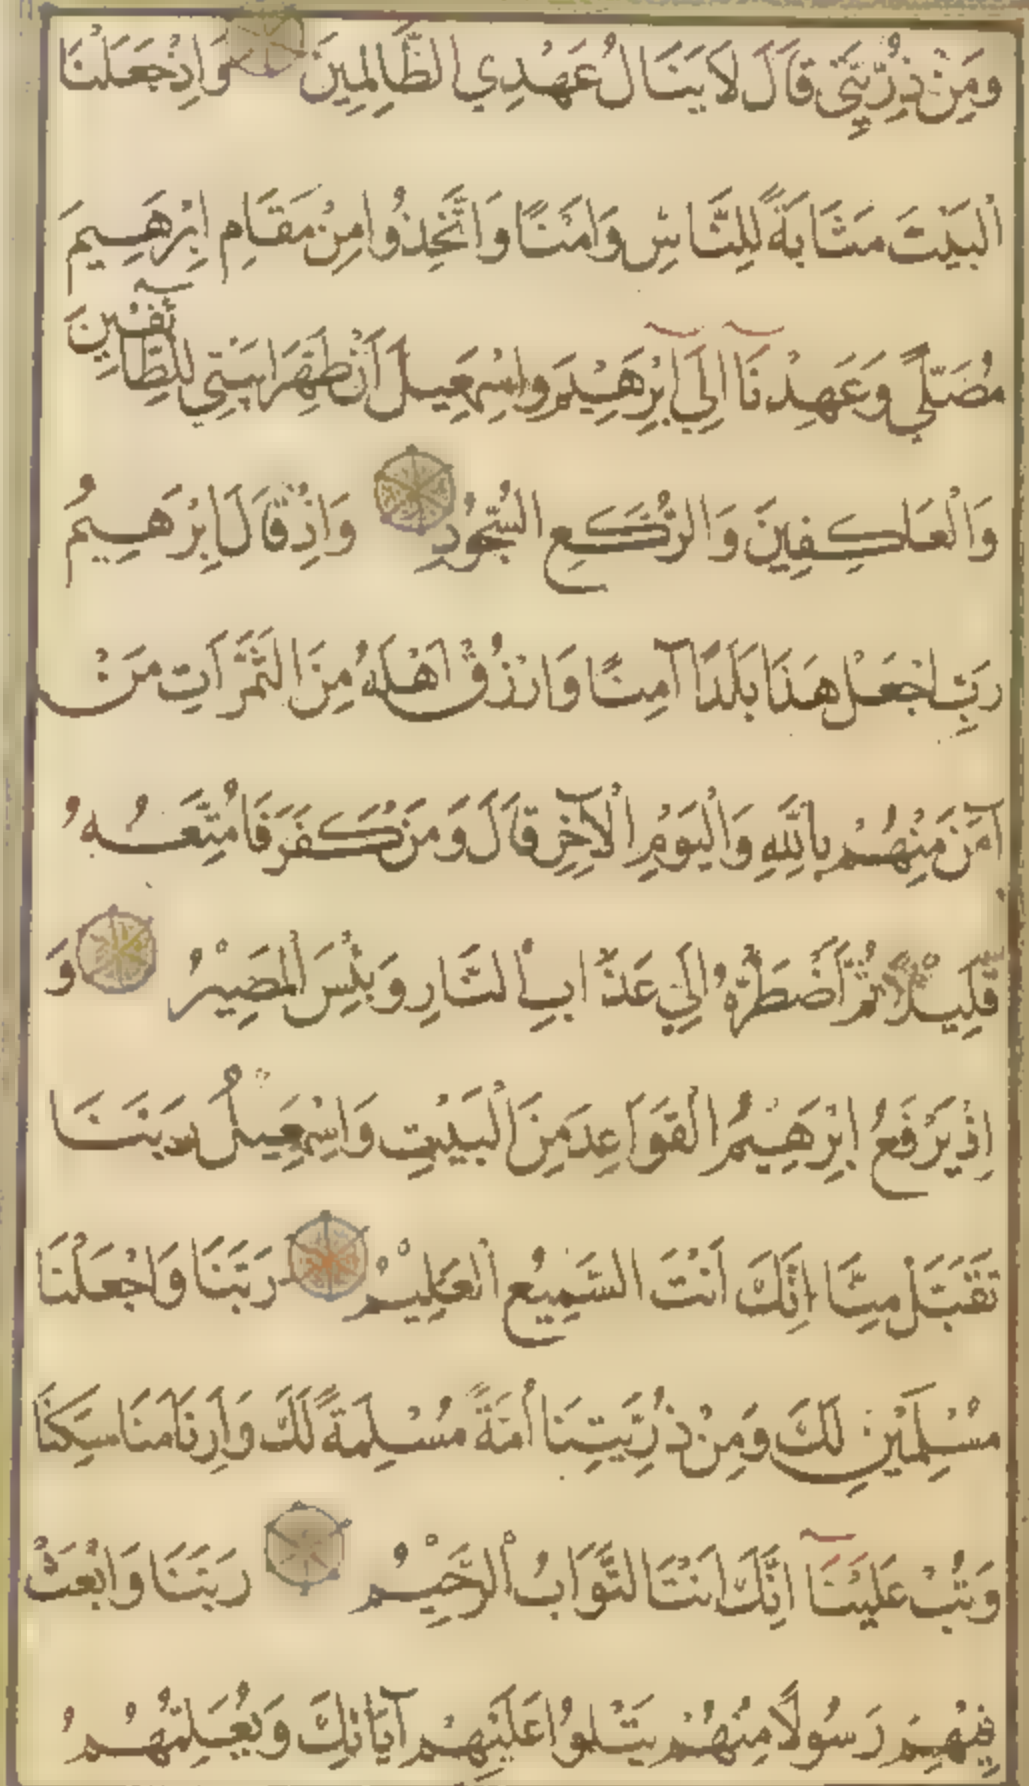 وَمِنْ ذُرِّيَّتِي قَالَ لَا يَنَالُ عَهْدِي الظَّالِمِينَ وَاِذْ جَعَلْنَا
الْبَيْتَ مَثَابَةً لِلنَّاسِ وَاَمْنًا وَاتَّخِذُوا مِنْ مَقَامِ اِبْرٰهِيمَ
مُصَلًّي وَعَهِدْنَآ اِلَيٓ اِبْرٰهِيْمَ وَاِسْمٰعِيلَ اَنْ طَهِّرَا بَيْتِي لِلطَّائِفِينَ
وَالْعَاكِفِينَ وَالرُّكَّعِ السُّجُودِ وَاِذْ قَالَ اِبْرٰهِيمُ
رَبِّ اجْعَلْ هَذَا بَلَدًا آمِنًا وَارْزُقْ اَهْلَهُ مِنَ الثَّمَرَاتِ مَنْ
آمَنَ مِنْهُمْ بِاللَّهِ وَالْيَوْمِ الْآخِرِ قَالَ وَمَنْ كَفَرَ فَاُمَتِّعُهُ
قَلِيْلًا ثُمَّ اَضْطَرُّهُ اِلَي عَذَابِ النَّارِ وَبِئْسَ الْمَصِيْرُ وَ
اِذْ يَرْفَعُ اِبْرٰهِيْمُ الْقَوَاعِدَ مِنَ الْبَيْتِ وَاِسْمٰعِيلُ رَبَّنَا
تَقَبَّلْ مِنَّا اِنَّكَ اَنْتَ السَّمِيْعُ الْعَلِيْمُ رَبَّنَا وَاجْعَلْنَا
مُسْلِمَيْنِ لَكَ وَمِنْ ذُرِّيَّتِنَا اُمَّةً مُسْلِمَةً لَكَ وَاَرِنَا مَنَاسِكَنَا
وَتُبْ عَلَيْنَآ اِنَّكَ اَنْتَ التَّوَّابُ الرَّحِيْمُ رَبَّنَا وَابْعَثْ
فِيْهِمْ رَسُولًا مِنْهُمْ يَتْلُوا عَلَيْهِمْ آيَاتِكَ وَيُعَلِّمُهُمُ